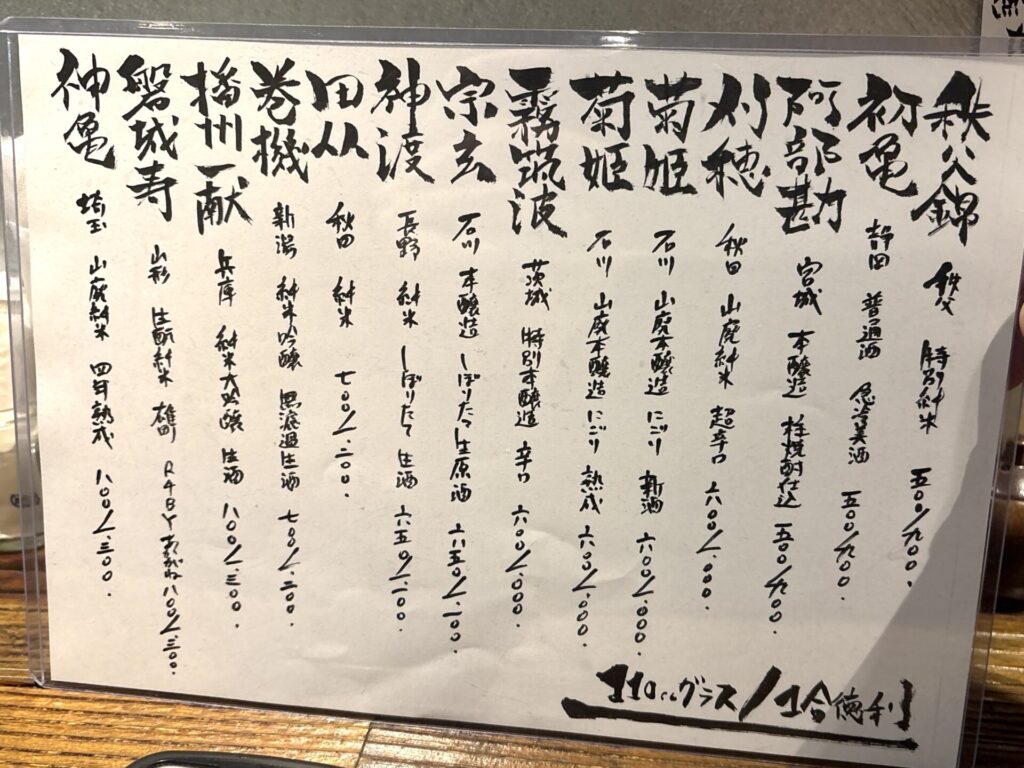 秩父錦 秩父 特別純米 五〇〇/九〇〇.
初亀 静岡 普通酒 急冷美酒 五〇〇/九〇〇.
阿部勘 宮城 本醸造 粕焼酎仕込 五〇〇/九〇〇.
刈穂 秋田 山廃純米 超辛口 六〇〇/一.〇〇〇.
菊姫 石川 山廃本醸造 にごり 新酒 六〇〇/一.〇〇〇.
菊姫 石川 山廃本醸造 にごり 熟成 六〇〇/一.〇〇〇.
霧筑波 茨城 特別本醸造 辛口 六〇〇/一.〇〇〇.
宗玄 石川 本醸造 しぼりたて 生原酒 六五〇/一.一〇〇.
神渡 長野 純米 しぼりたて 生酒 六五〇/一.一〇〇.
田从 秋田 純米 七〇〇/一.二〇〇.
巻機 新潟 純米吟醸 無濾過生酒 七〇〇/一.二〇〇.
播州一献 兵庫 純米大吟醸 生酒 八〇〇/一.三〇〇.
磐城寿 山形 生酛純米 雄町 R4BY あかがね 八〇〇/一.三〇〇.
神亀 埼玉 山廃純米 四年熟成 八〇〇/一.三〇〇.
110ccグラス/1合徳利